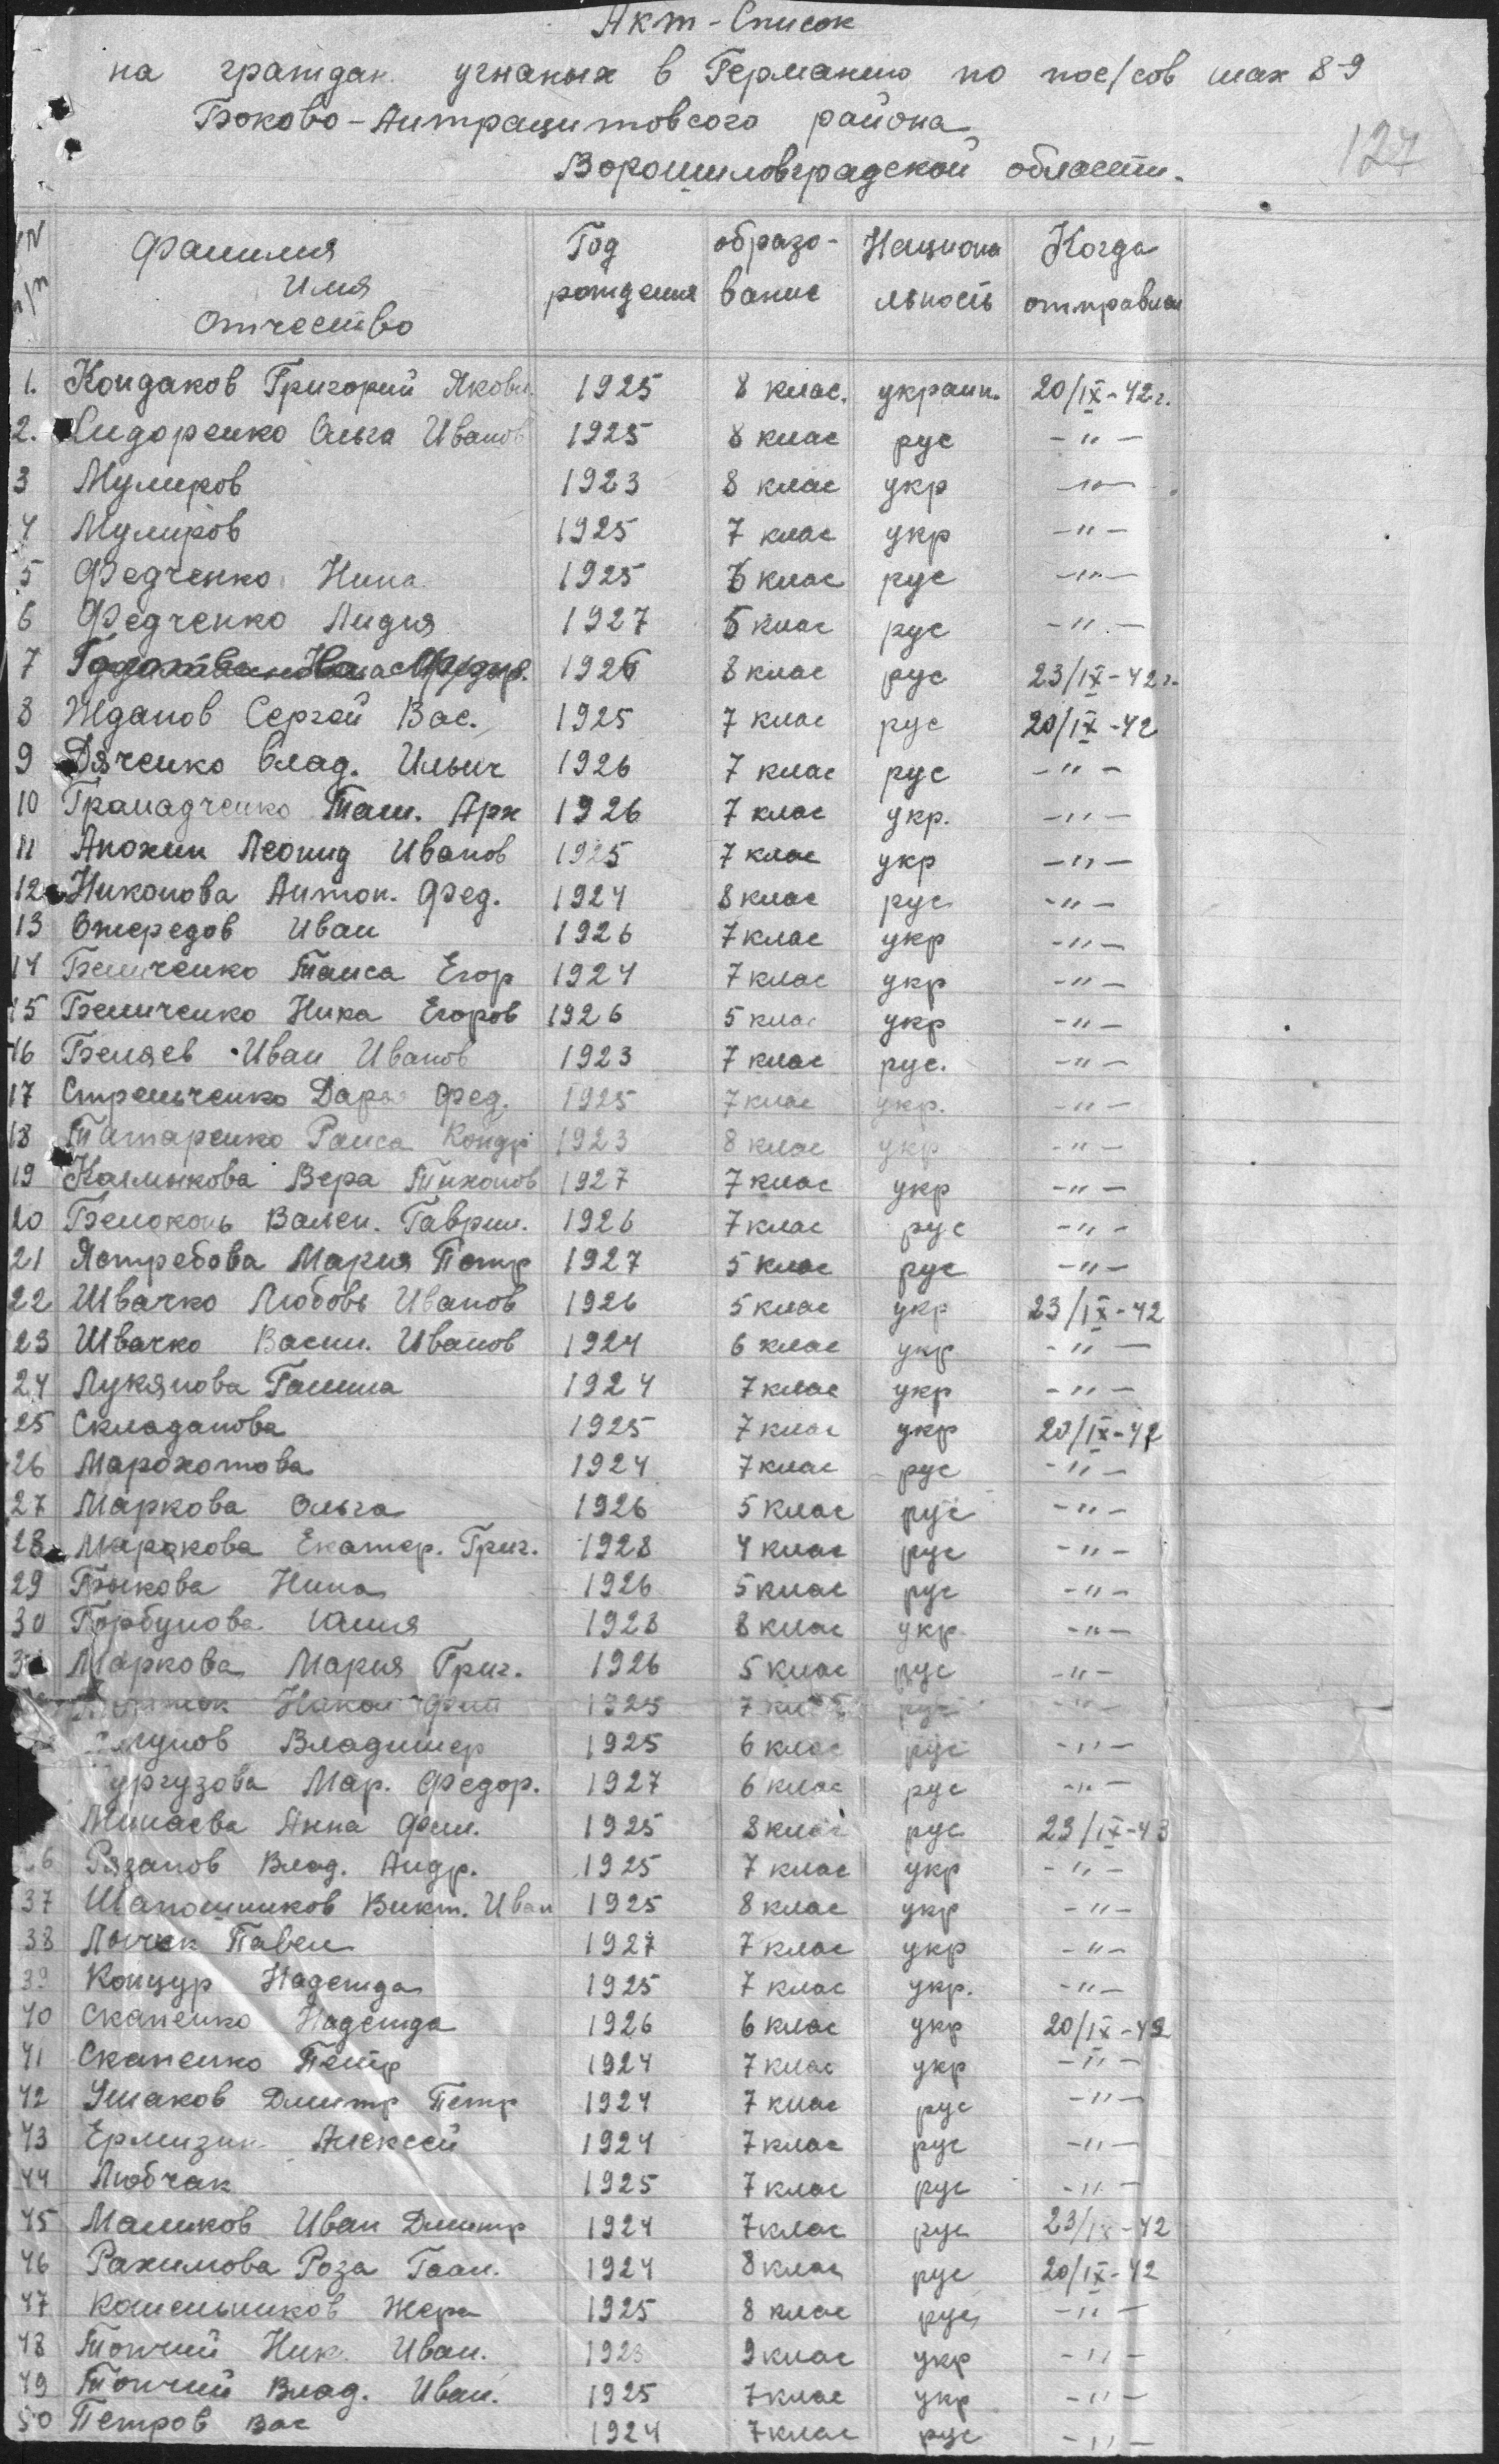 Акт-Список
на граждан угнаных в Германию по пос/сов шах 8-9
Боково-Антрацитовсого района
Ворошиловградской области.
127
N п/п Фамилия Имя Отчество Год рождения образо-вание Национальность Когда отправлен
1. Кондаков Григорий Яковл. 1925 8 клас. украин. 20/IX-42г.
2. Сидоренко Ольга Иванов 1925 8 клас рус -"-
3 Мулиров 1923 8 клас укр -"-
4 Мулиров 1925 7 клас укр -"-
5 Федченко Нина 1925 6 клас рус -"-
6 Федченко Лидия 1927 5 клас рус -"-
7 1926 8 клас рус 23/IX-42г.
8 Жданов Сергей Вас. 1925 7 клас рус 20/IX-42
9 Дяченко Влад. Ильич 1926 7 клас рус -"-
10 Грамадченко Там. Арх 1926 7 клас укр. -"-
11 Анохин Леонид Иванов 1925 7 клас укр -"-
12 Никонова Антон. Фед. 1924 8 клас рус -"-
13 Ожередов Иван 1926 7 клас укр -"-
14 Беличенко Таиса Егор 1924 7 клас укр -"-
15 Беличенко Ника Егоров 1926 5 клас укр -"-
16 Беляев Иван Иванов 1923 7 клас рус. -"-
17 Стрельченко Даря Фед. 1925 7 клас укр. -"-
18 Титаренко Раиса Кондр 1923 8 клас укр -"-
19 Калмыкова Вера Тихонов 1927 7 клас укр -"-
20 Белоконь Вален. Гаврил. 1926 7 клас рус -"-
21 Ястребова Мария Петр 1927 5 клас рус -"-
22 Швачко Любовь Иванов 1926 5 клас укр 23/IX-42
23 Швачко Васил. Иванов 1924 6 клас укр -"-
24 Лукянова Галина 1924 7 клас укр -"-
25 Складанова 1925 7 клас укр 20/IX-42
26 Марохотова 1924 7 клас рус -"-
27 Маркова Ольга 1926 5 клас рус -"-
28 Маракова Екатер. Григ. 1928 4 клас рус -"-
29 Быкова Нина 1926 5 клас рус -"-
30 Горбунова Юлия 1923 8 клас укр -"-
3 Маркова Мария Григ. 1926 5 клас рус -"-
1925 7 клас рус -"-
Владимер 1925 6 клас рус -"-
ургузова Мар. Федор. 1927 6 клас рус -"-
Минаева Анна Фил. 1925 8 клас рус 23/IX-43
36 Рязанов Влад. Андр. 1925 7 клас укр -"-
37 Шапошников Викт. Иван 1925 8 клас укр -"-
38 Павел 1927 7 клас укр -"-
39 Концур Надежда 1925 7 клас укр. -"-
40 Скапенко Надежда 1926 6 клас укр 20/IX-42
41 Скапенко Петр 1924 7 клас укр -"-
42 Ушаков Дмитр Петр 1924 7 клас рус -"-
43 Ермизин Алексей 1924 7 клас рус -"-
44 Любчак 1925 7 клас рус -"-
45 Маликов Иван Дмитр 1924 7 клас рус 23/IX-42
46 Рахимова Роза Гали. 1924 8 клас рус 20/IX-42
47 Котельников Жера 1925 8 клас рус -"-
48 Топчий Ник. Иван. 1923 9 клас укр -"-
49 Топчий Влад. Иван. 1925 7 клас укр -"-
50 Петров Вас 1924 7 клас рус -"-